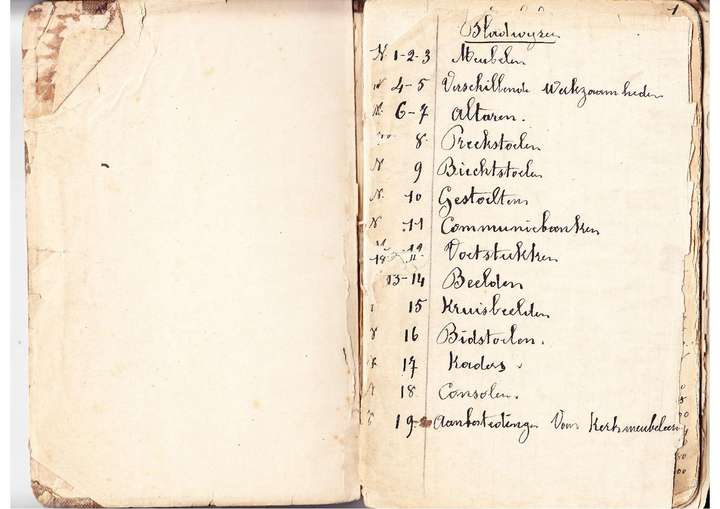 1
Bladwyzer
N. 1-2-3 Meubelen
N 4-5 Verschillende Werkzaamheden
N. 6-7 Altaren.
8 Preekstoelen
N 9 Biechtstoelen
N. 10 Gestoelten
N 11 Communiebanken
12 Voetstukken
13-14 Beelden
15 Kruisbeelden
16 Bidstoelen.
17 Kaders
18 Consolen.
19 Aanbestedingen Voor Kerkmeubelen